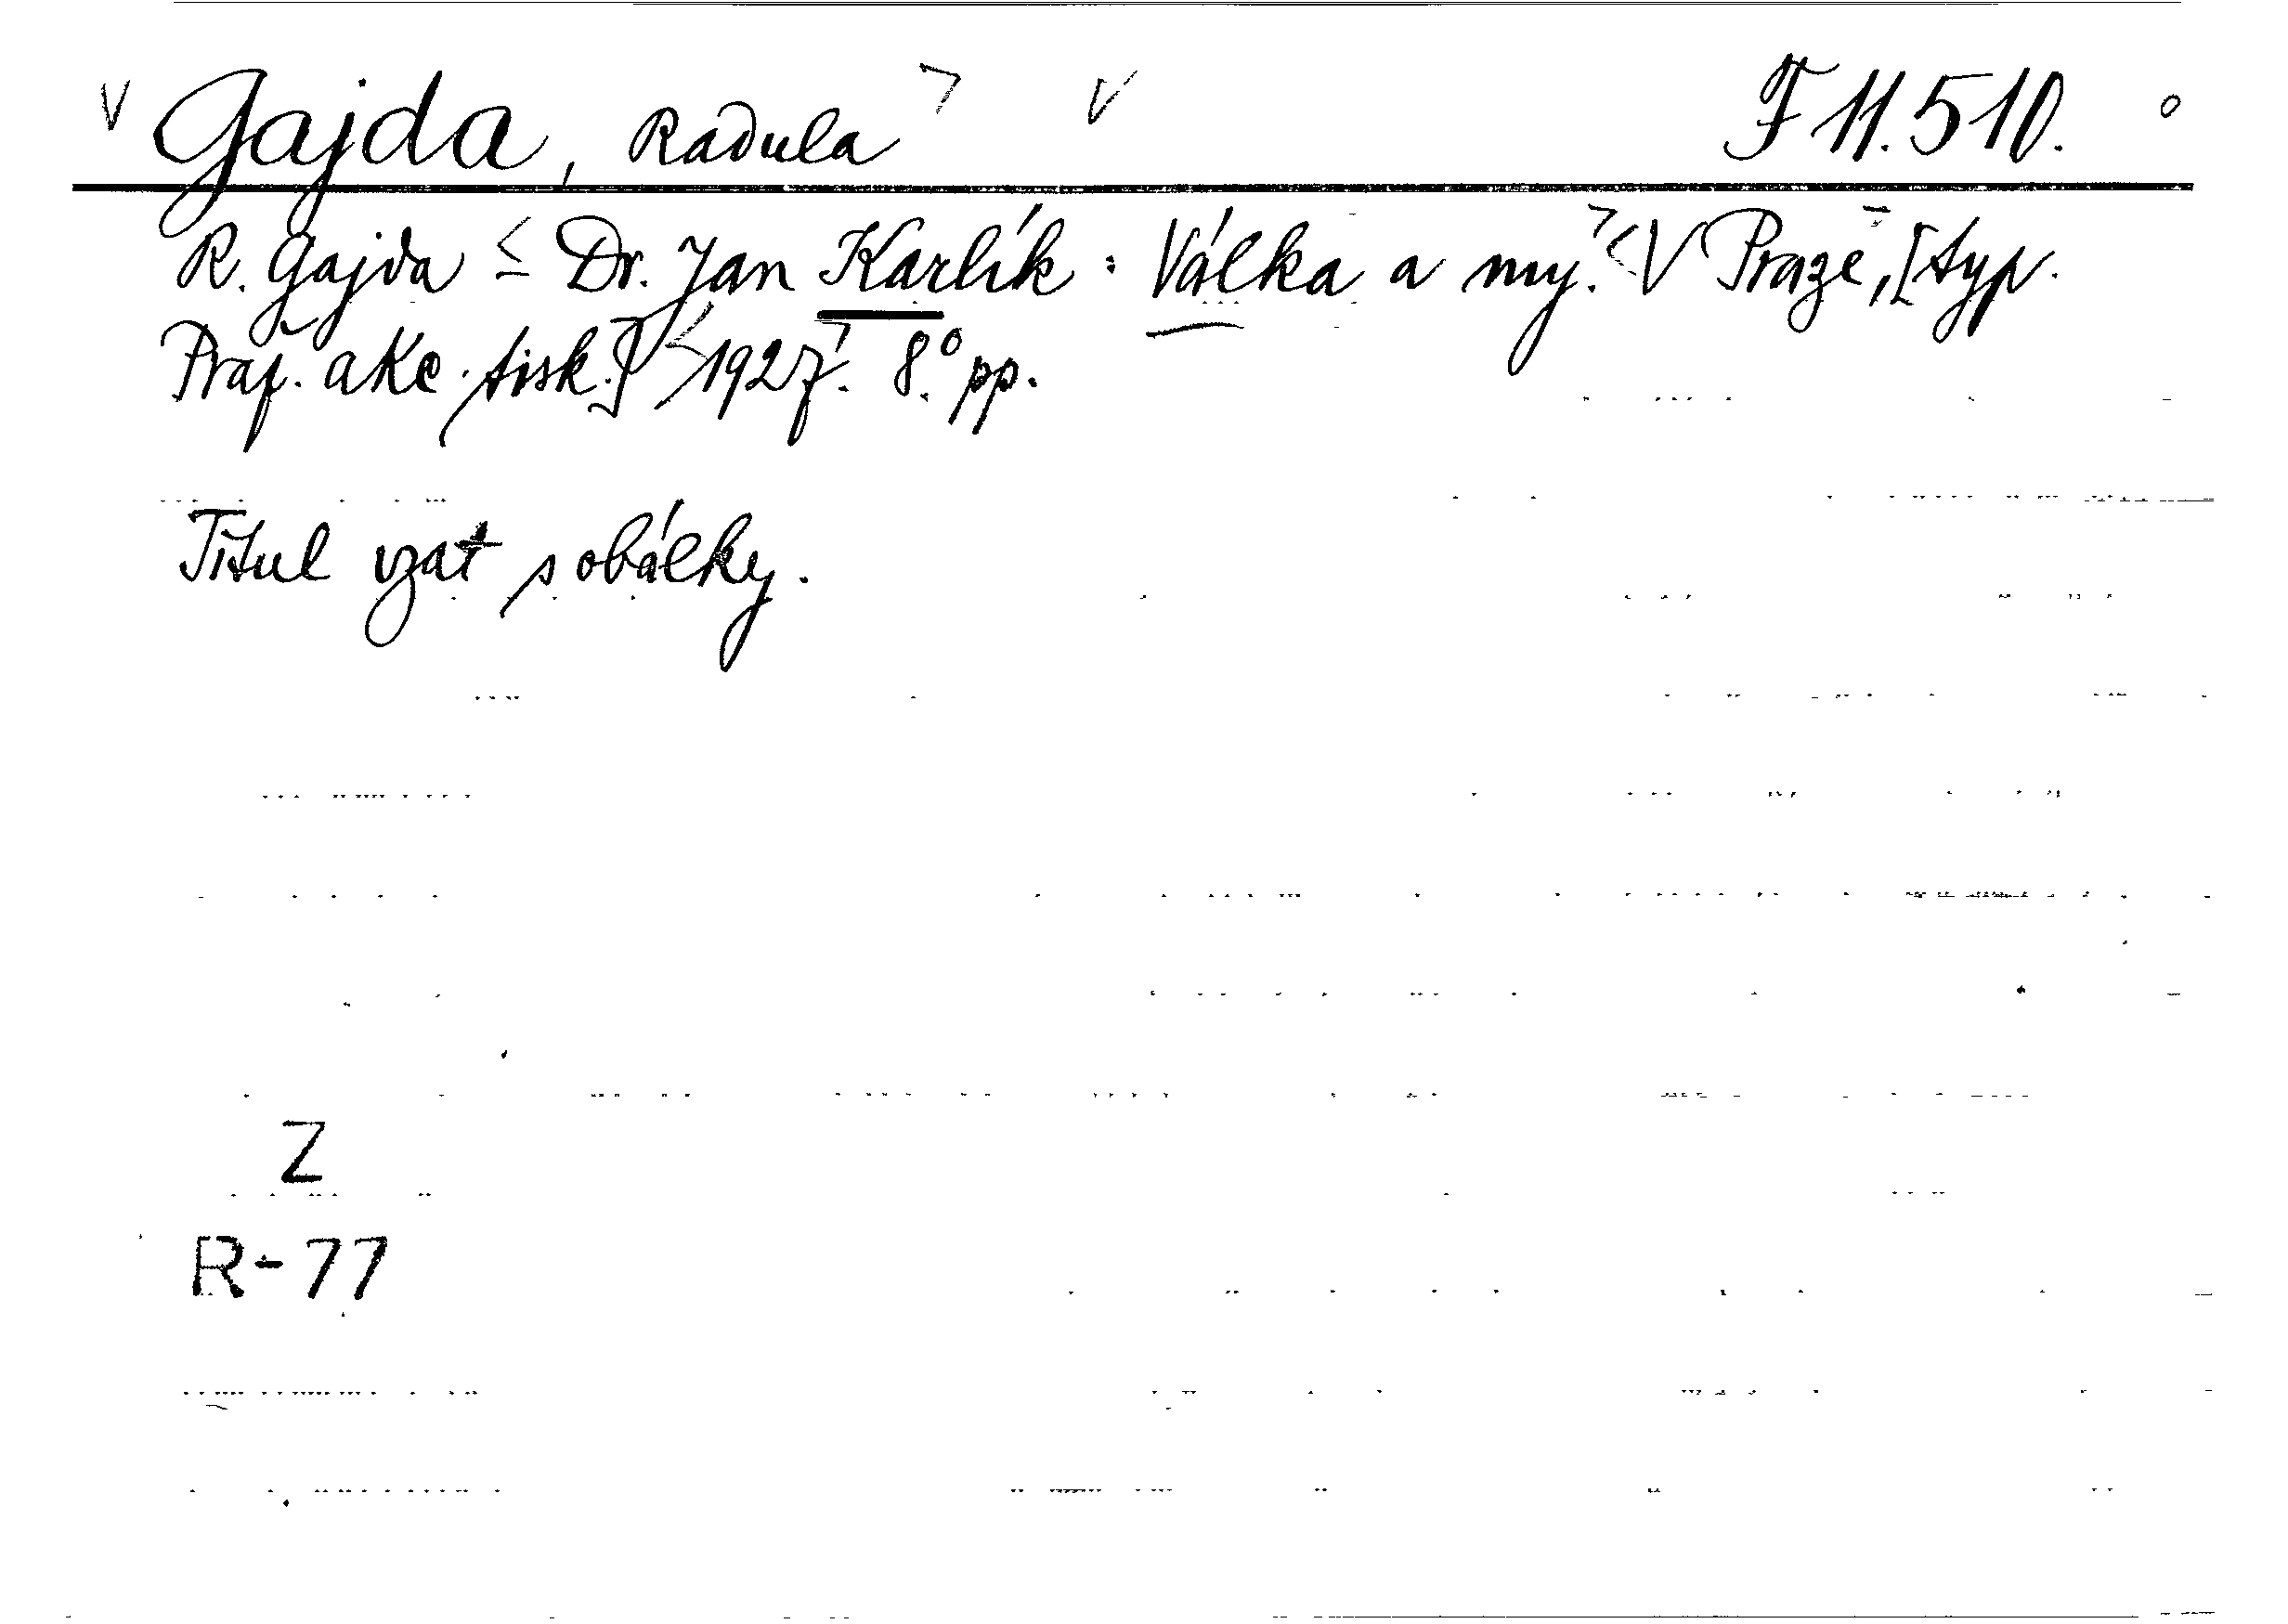 Gajda, Radula F 11.510.
R. Gajda < Dr. Jan Karlík : Válka a my. V Praze, [typ.
Praž. akc. tisk.] 1927. 8.° pp.
Titul vzat s obálky.
Z
R-77